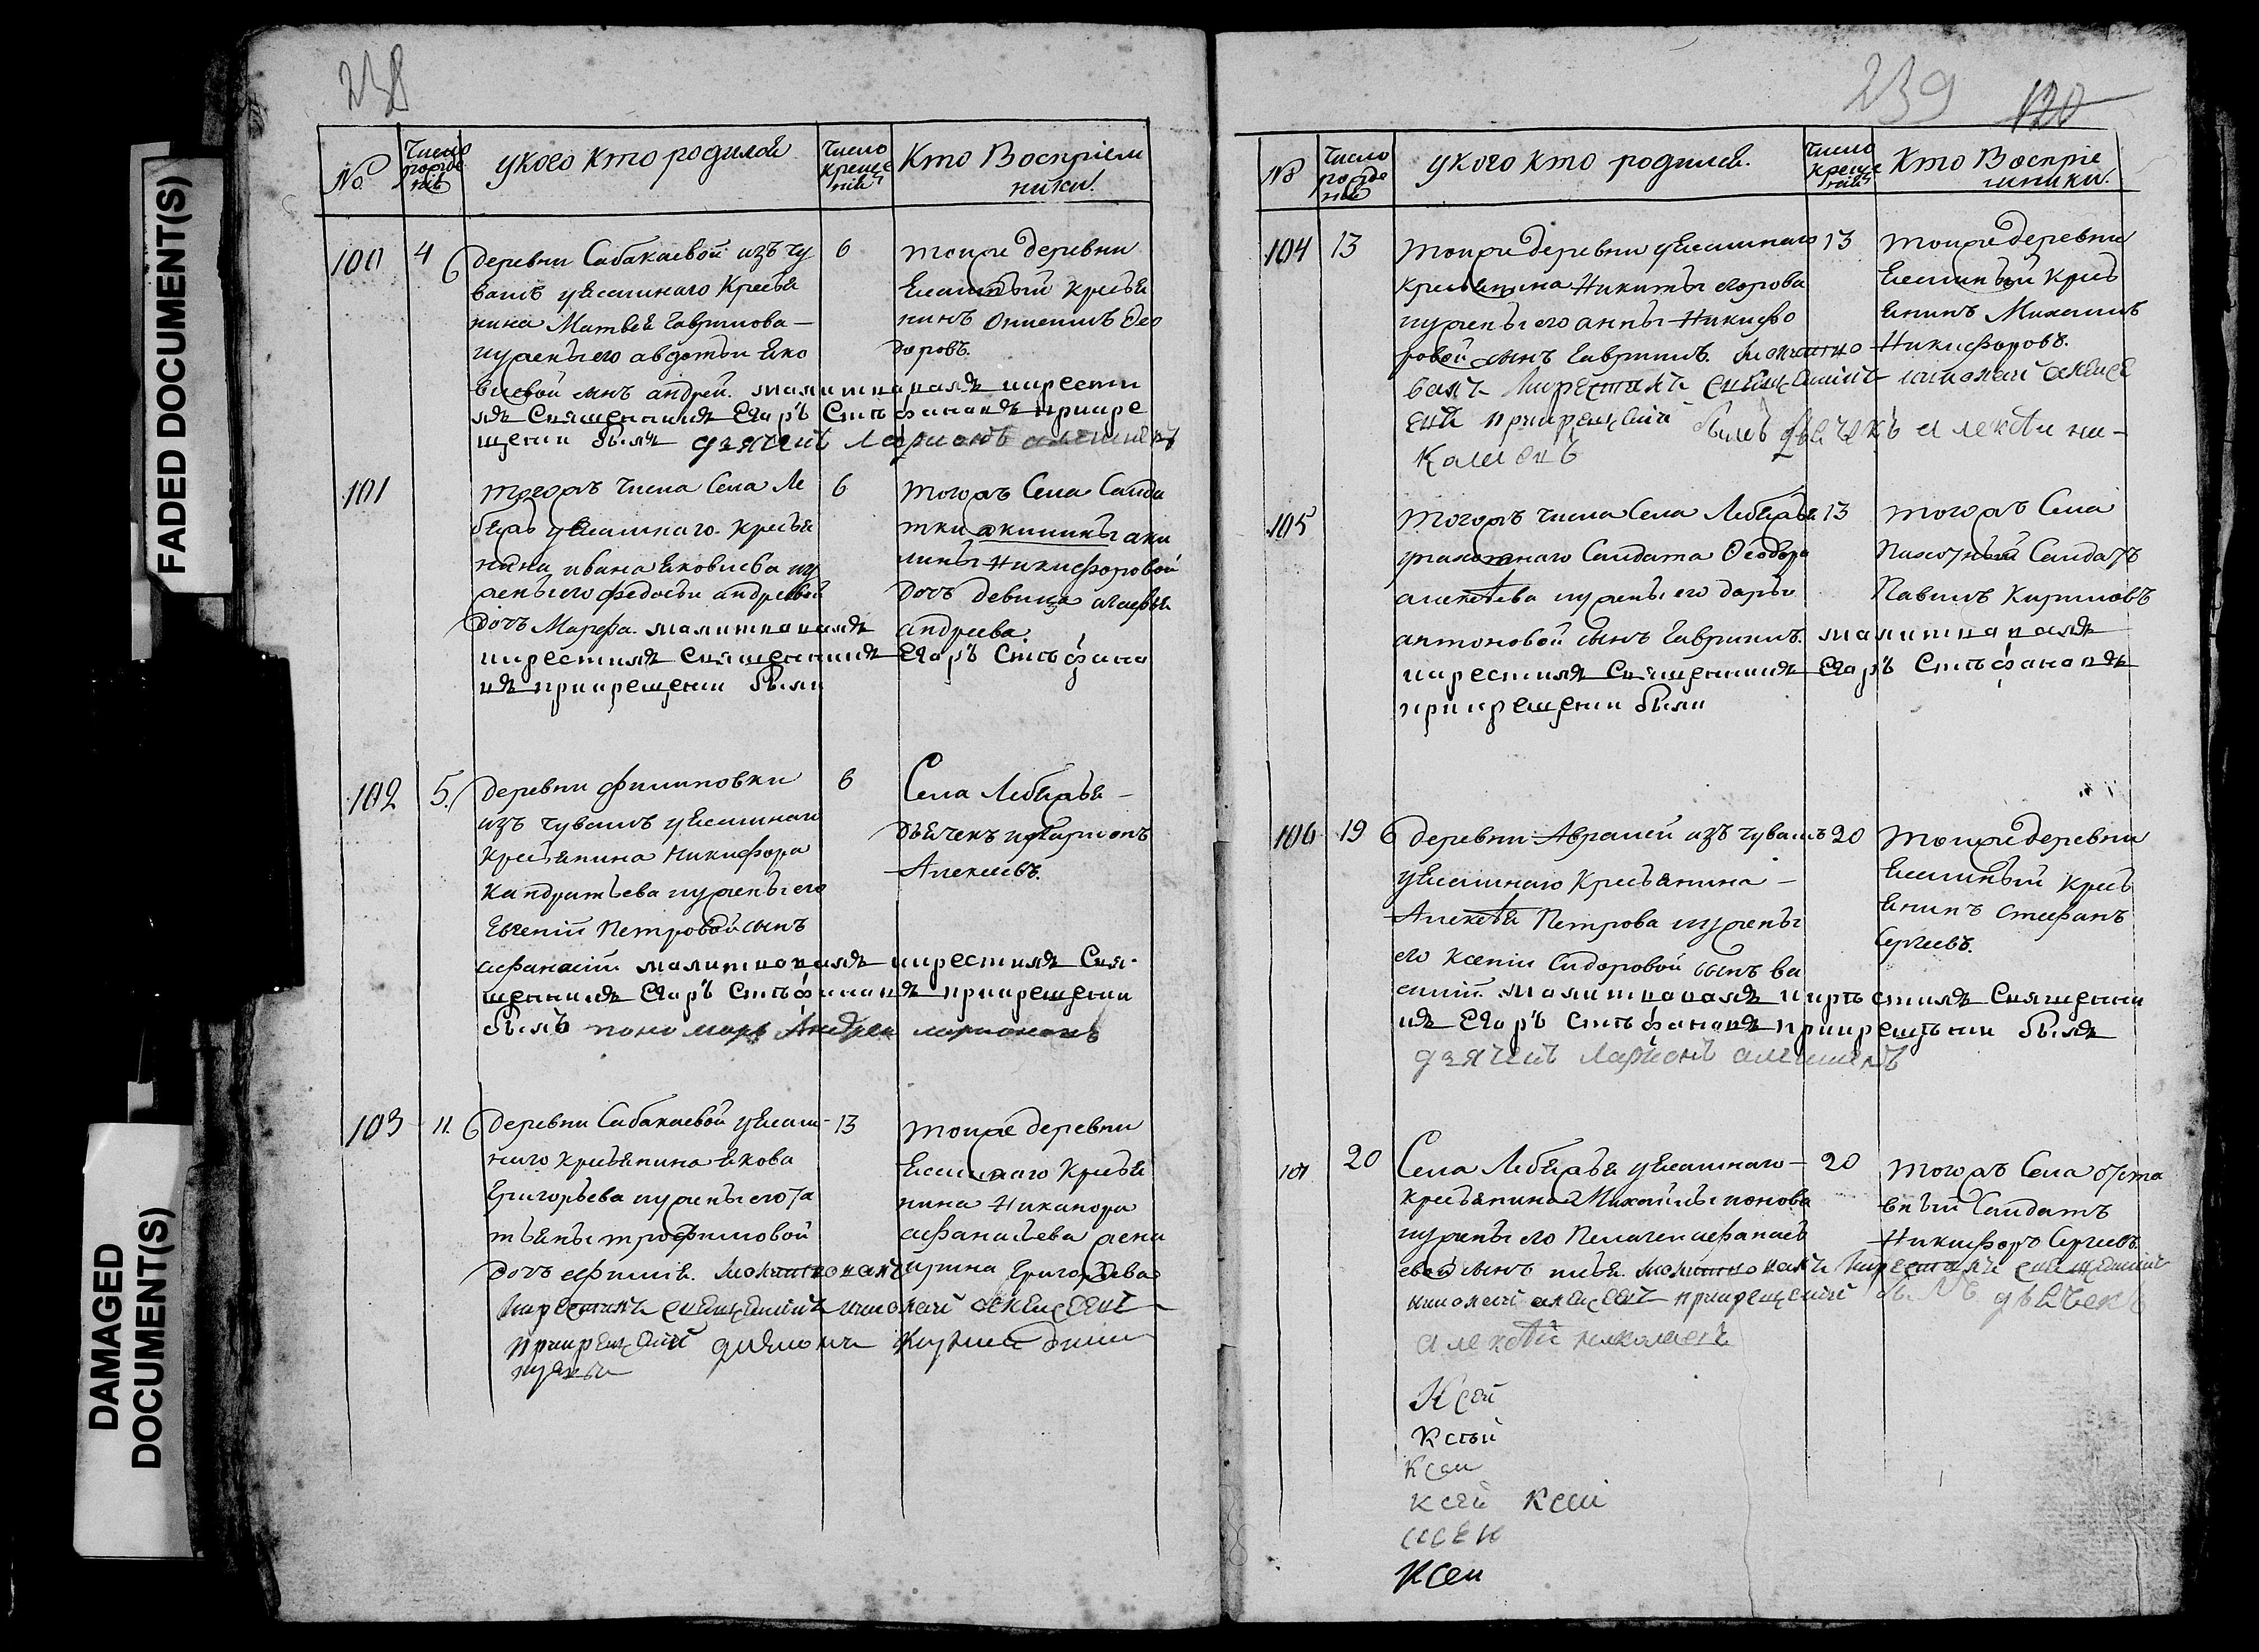 FADED DOCUMENT(S)
DAMAGED
DOCUMENT(S)
238
№
Число рожде нiя
У кого кто родился
Число креще нiя
Кто Воспрiем
ники.
100 4 деревни Сабакаевой изъ чу
вашъ уясашнаго Кресья
нина Матвея Гаврилова
ижены его авдотьи яко
влевой сынъ андрей. малитвовалъ икрести
лъ Священникъ Егоръ Стефановъ прикре
щении былъ дячекъ Ларионъ
6 тоиже деревни
Ясашный кресья
нинъ Онисимъ Фео
доровъ.
101 тогожъ числа Села Ле
бяжъ уясашнаго кресья
нина ивана яковлева иж
жены его федосьи андреевой
дочь Марфа. малитвовалъ
икрестилъ Священникъ Егоръ Стефано
въ прикрещении были
6 тогожъ Села Салда
тки акилины аки
лины Никифоровой
дочь девица
андреева.
102 5. деревни филиповки
изъ чувашъ уясашнаго
кресьянина Никифора
Кандратьева ижены его
Евгенiи Петровой сынъ
афанасiй. малитвовалъ икрестилъ Свя
щенникъ Егоръ Стефановъ прикрещении
былъ пономарь Андреи
6 Села Лебяжья
дьячекъ иларионъ
Алексеевъ.
103 11. деревни Сабакаевой уясаш
наго кресьянина якова
Григорьева ижены его та
тьяны трофимовой
дочь
икрестилъ священникъ николай алексеевъ
прикрещенiй дияконъ Кузма
13 тоиже деревни
Ясашнаго Кресья
нина Никанора
афанасьева жена
ирина Григорьева
239 120
№
Число рожде нiя
У кого кто родился.
Число креще нiя
Кто Воспрiе
мники.
104 13 тоиже деревни уясашнаго
кресьянина Никиты егорова
ижены его анны Никифо
ровой сынъ Гаврiилъ. молитво
валъ икрестилъ священникъ николай алексе
евъ прикрещенiй былъ дьячекъ алексей ни-
колаевъ
13 тоиже деревни
Ясашный Кресь
янинъ Михаилъ
Никифоровъ.
105 тогожъ числа Села Лебяжья
упахотнаго Салдата Феодора
алексеева ижены его дарьи
антоновой сынъ Гаврiилъ. малитвовалъ
икрестилъ Священникъ Егоръ Стефановъ
прикрещении были
13 тогожъ Села
Пахотный Салдатъ
Павелъ Кириловъ
106 19 деревни Авралей изъ чувашъ
уясашнаго Кресьянина
Алексея Петрова ижены
его Ксенiи Сидоровой сынъ ва
силiй. малитвовалъ икрестилъ Священни
къ Егоръ Стефановъ прикрещении былъ
дячекъ Ларионъ
20 тоиже деревни
Ясашный кресь
янинъ Стефанъ
Сергеевъ.
107 20 Села Лебяжья уясашнаго
кресьянина Михайлы попова
ижены его Пелагеи афанась
евой сынъ илья. молитвовалъ икрестилъ священникъ
николай алексеевъ прикрещенiй былъ дьячекъ
алексей николаевъ
20 тогожъ Села отста
вный Салдатъ
Никифоръ Сергеевъ.
Ксей
Ксей
Ксеи
ксей ксей
Ксеи